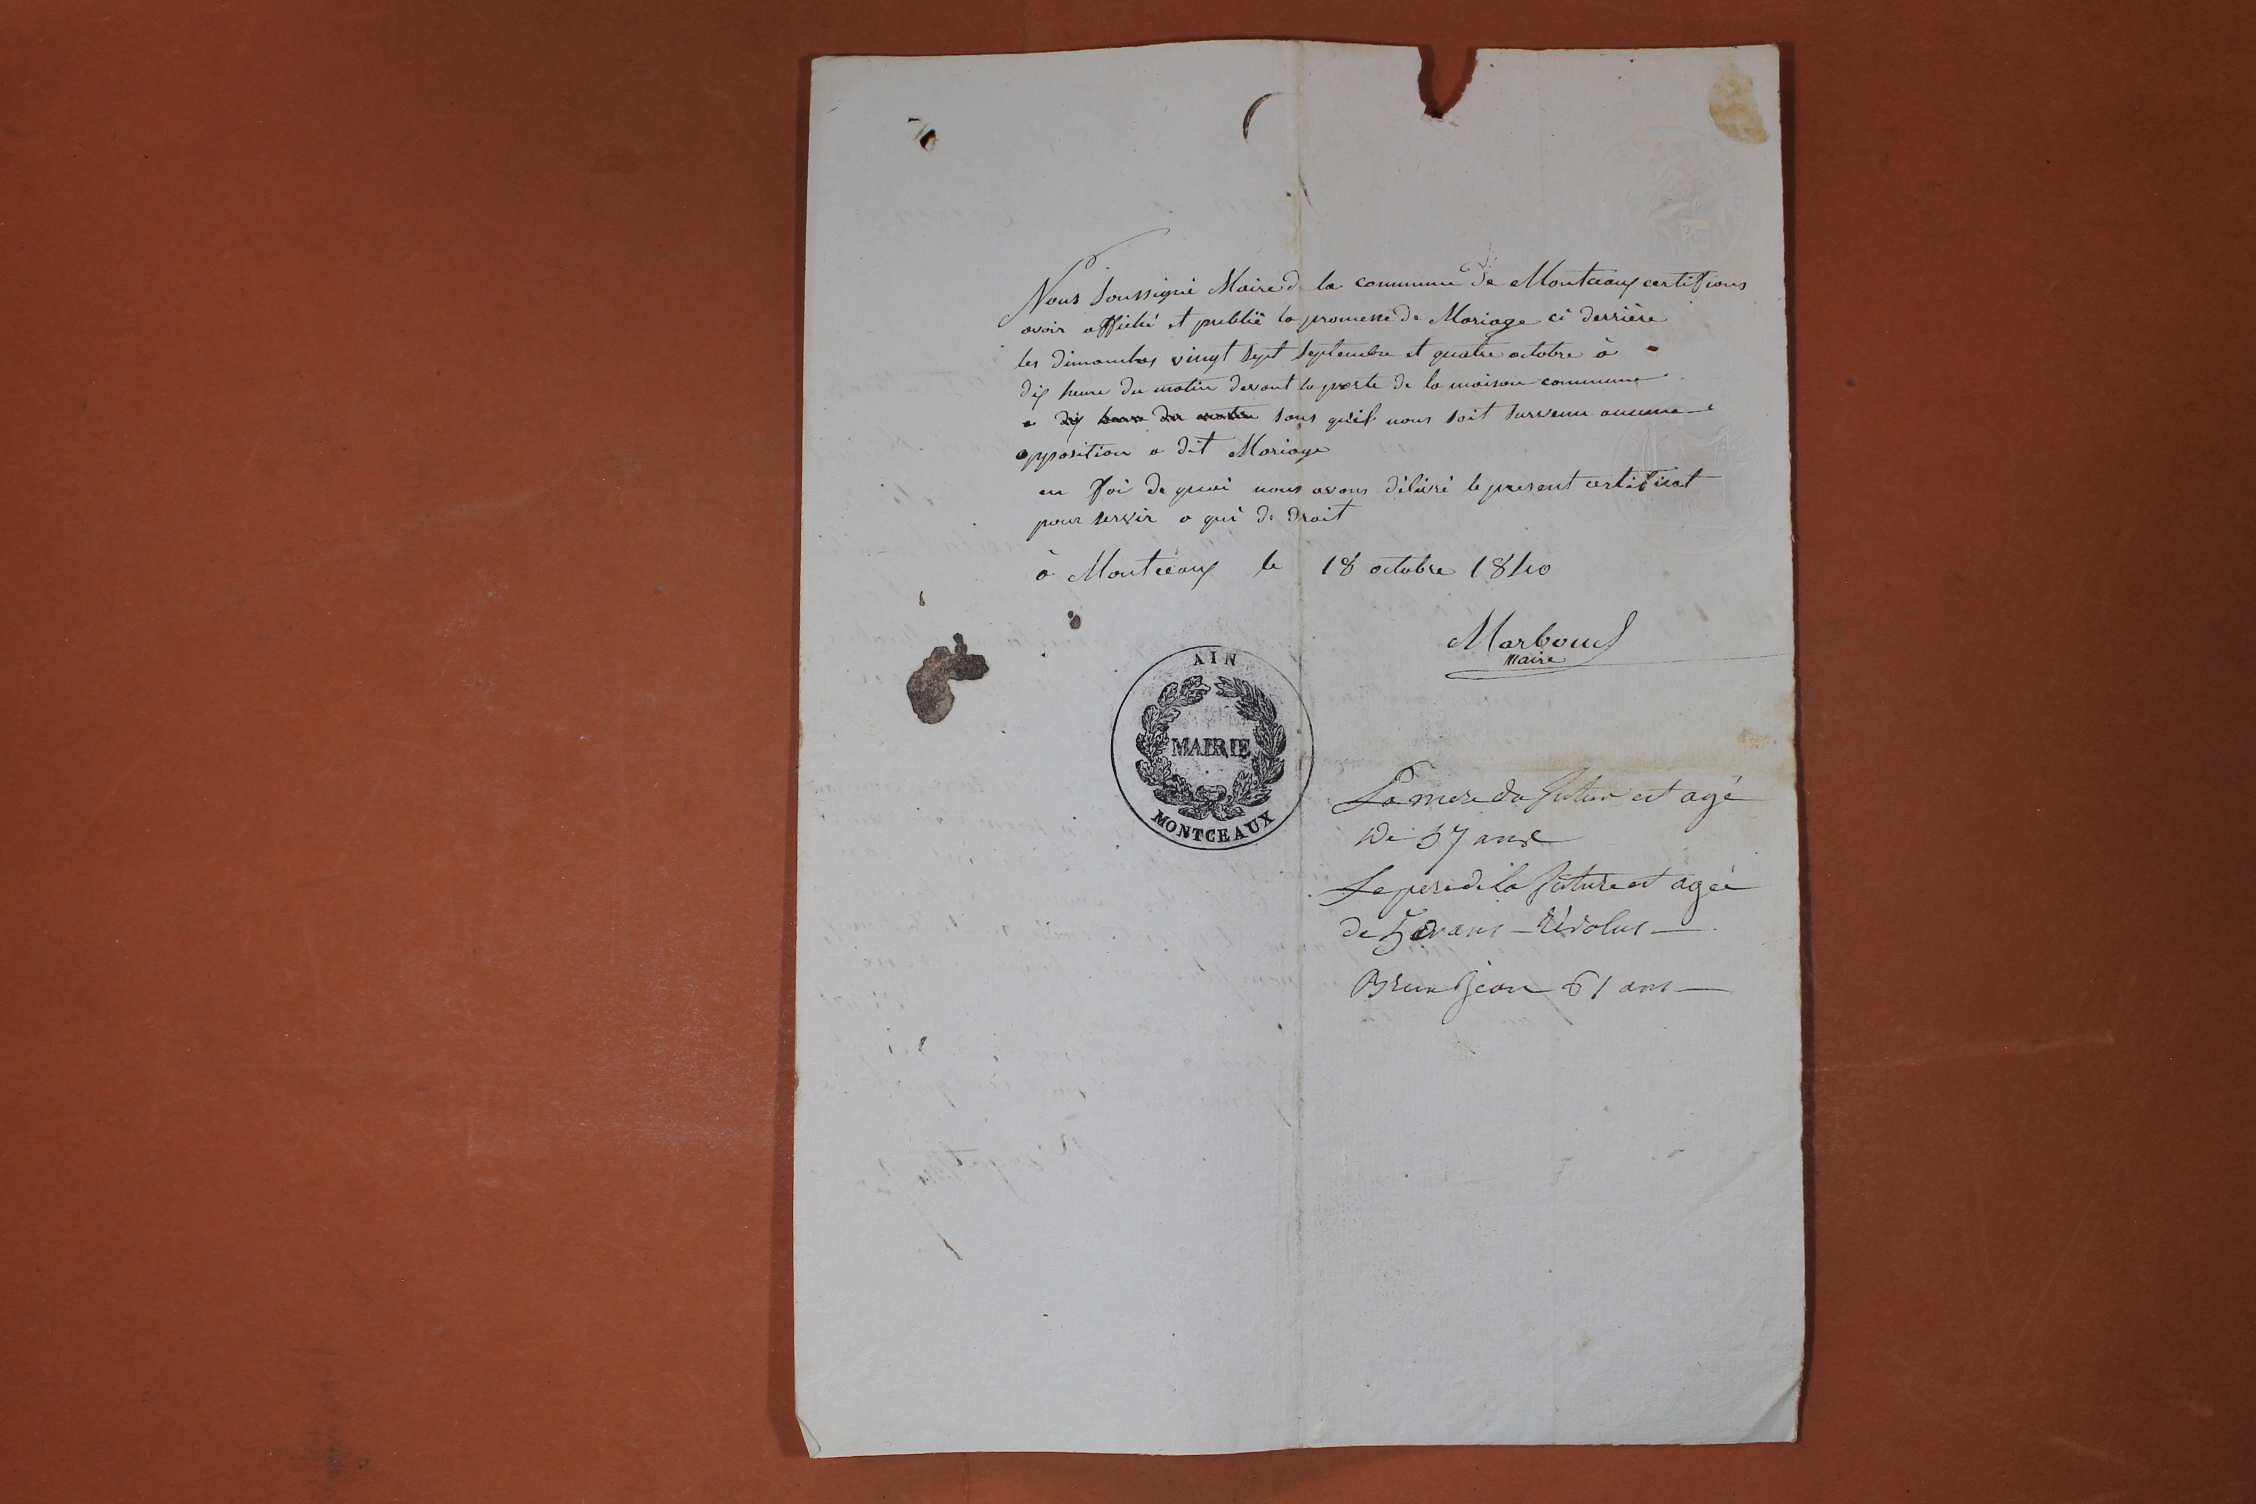 Nous Soussigné Maire de la commune de Montceaux certifions
avoir affiché et publié la promesse de Mariage ci derrière
les dimanches vingt sept septembre et quatre octobre à
dix heure du matin devant la porte de la maison commune
a dix heure du matin sans qu'il nous soit survenu aucune
opposition a dit Mariage
en foi de quoi nous avons délivré le present certificat
pour servir a qui de droit
à Montceaux le 18 octobre 1840
Maire
AIN
MAIRIE
MONTCEAUX
La mere du futur est agé
de 57 ans
Le pere de la future est agée
de ans révolus
Brun Jean 61 ans